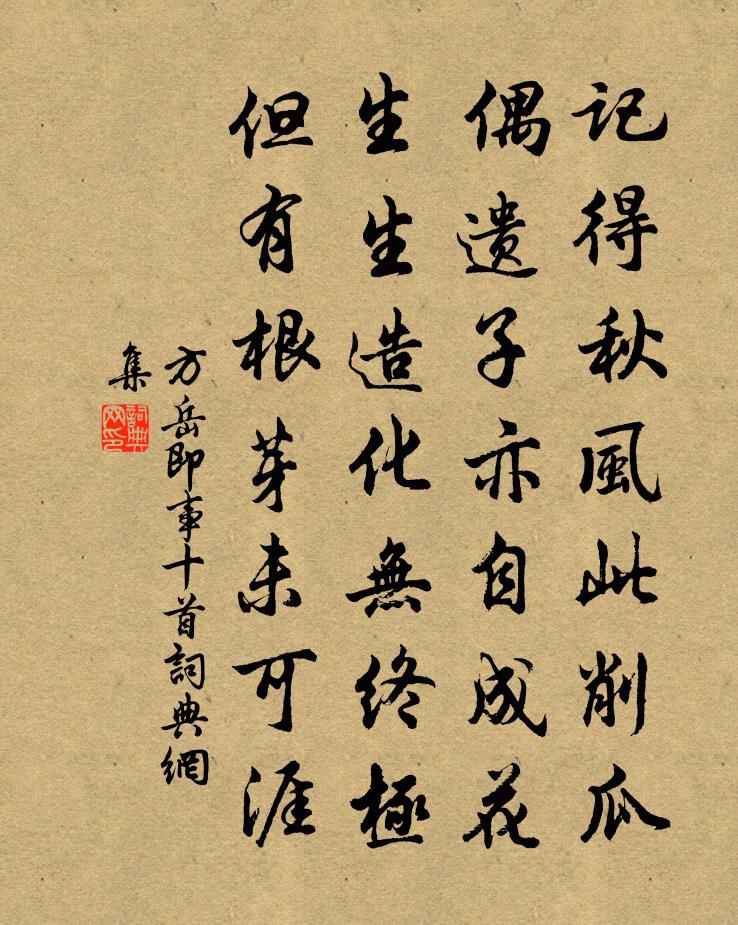 记得秋風此削瓜
偶遗子亦自成花
生生造化無終極
但有根芽未可涯
方岳即事十首詞典網
集
詞典
网印